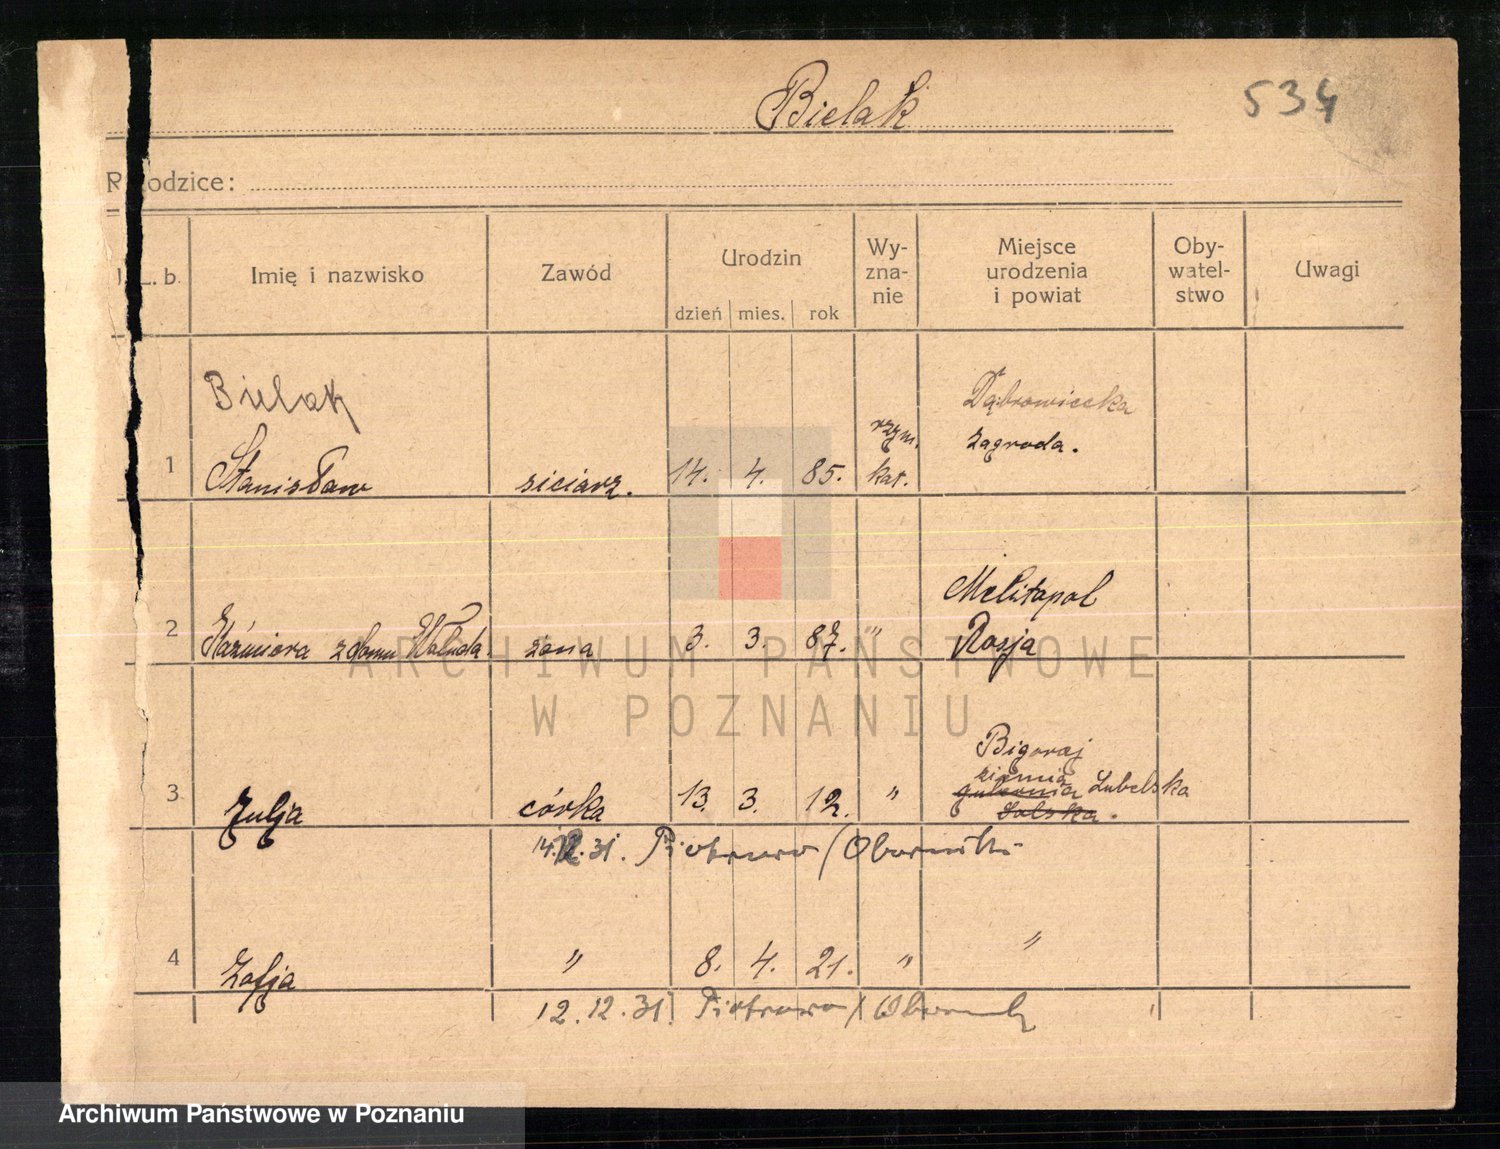 Bielak
534
Rodzice:
L. b.
Imię i nazwisko
Zawód
Urodzin
dzień mies. rok
Wy-
zna-
nie
Miejsce
urodzenia
i powiat
Oby-
watel-
stwo
Uwagi
Bielak
1 Stanisław siciarz. 14. 4. 85. rzym. kat.
Dąbrowiecka
zagroda.
2 Kaźmiera z domu Wałuda żona 3. 3. 87. "
Melitapol
Rosja
3 Julja córka 13. 3. 12. "
Bigoraj
ziemia
gubernia Lubelska
14. 31. Piotrowo / Oborniki
4 Zofja " 8. 4. 21. " "
12.12.31. Piotrowo / Obornik
ARCHIWUM PAŃSTWOWE
W POZNANIU
Archiwum Państwowe w Poznaniu